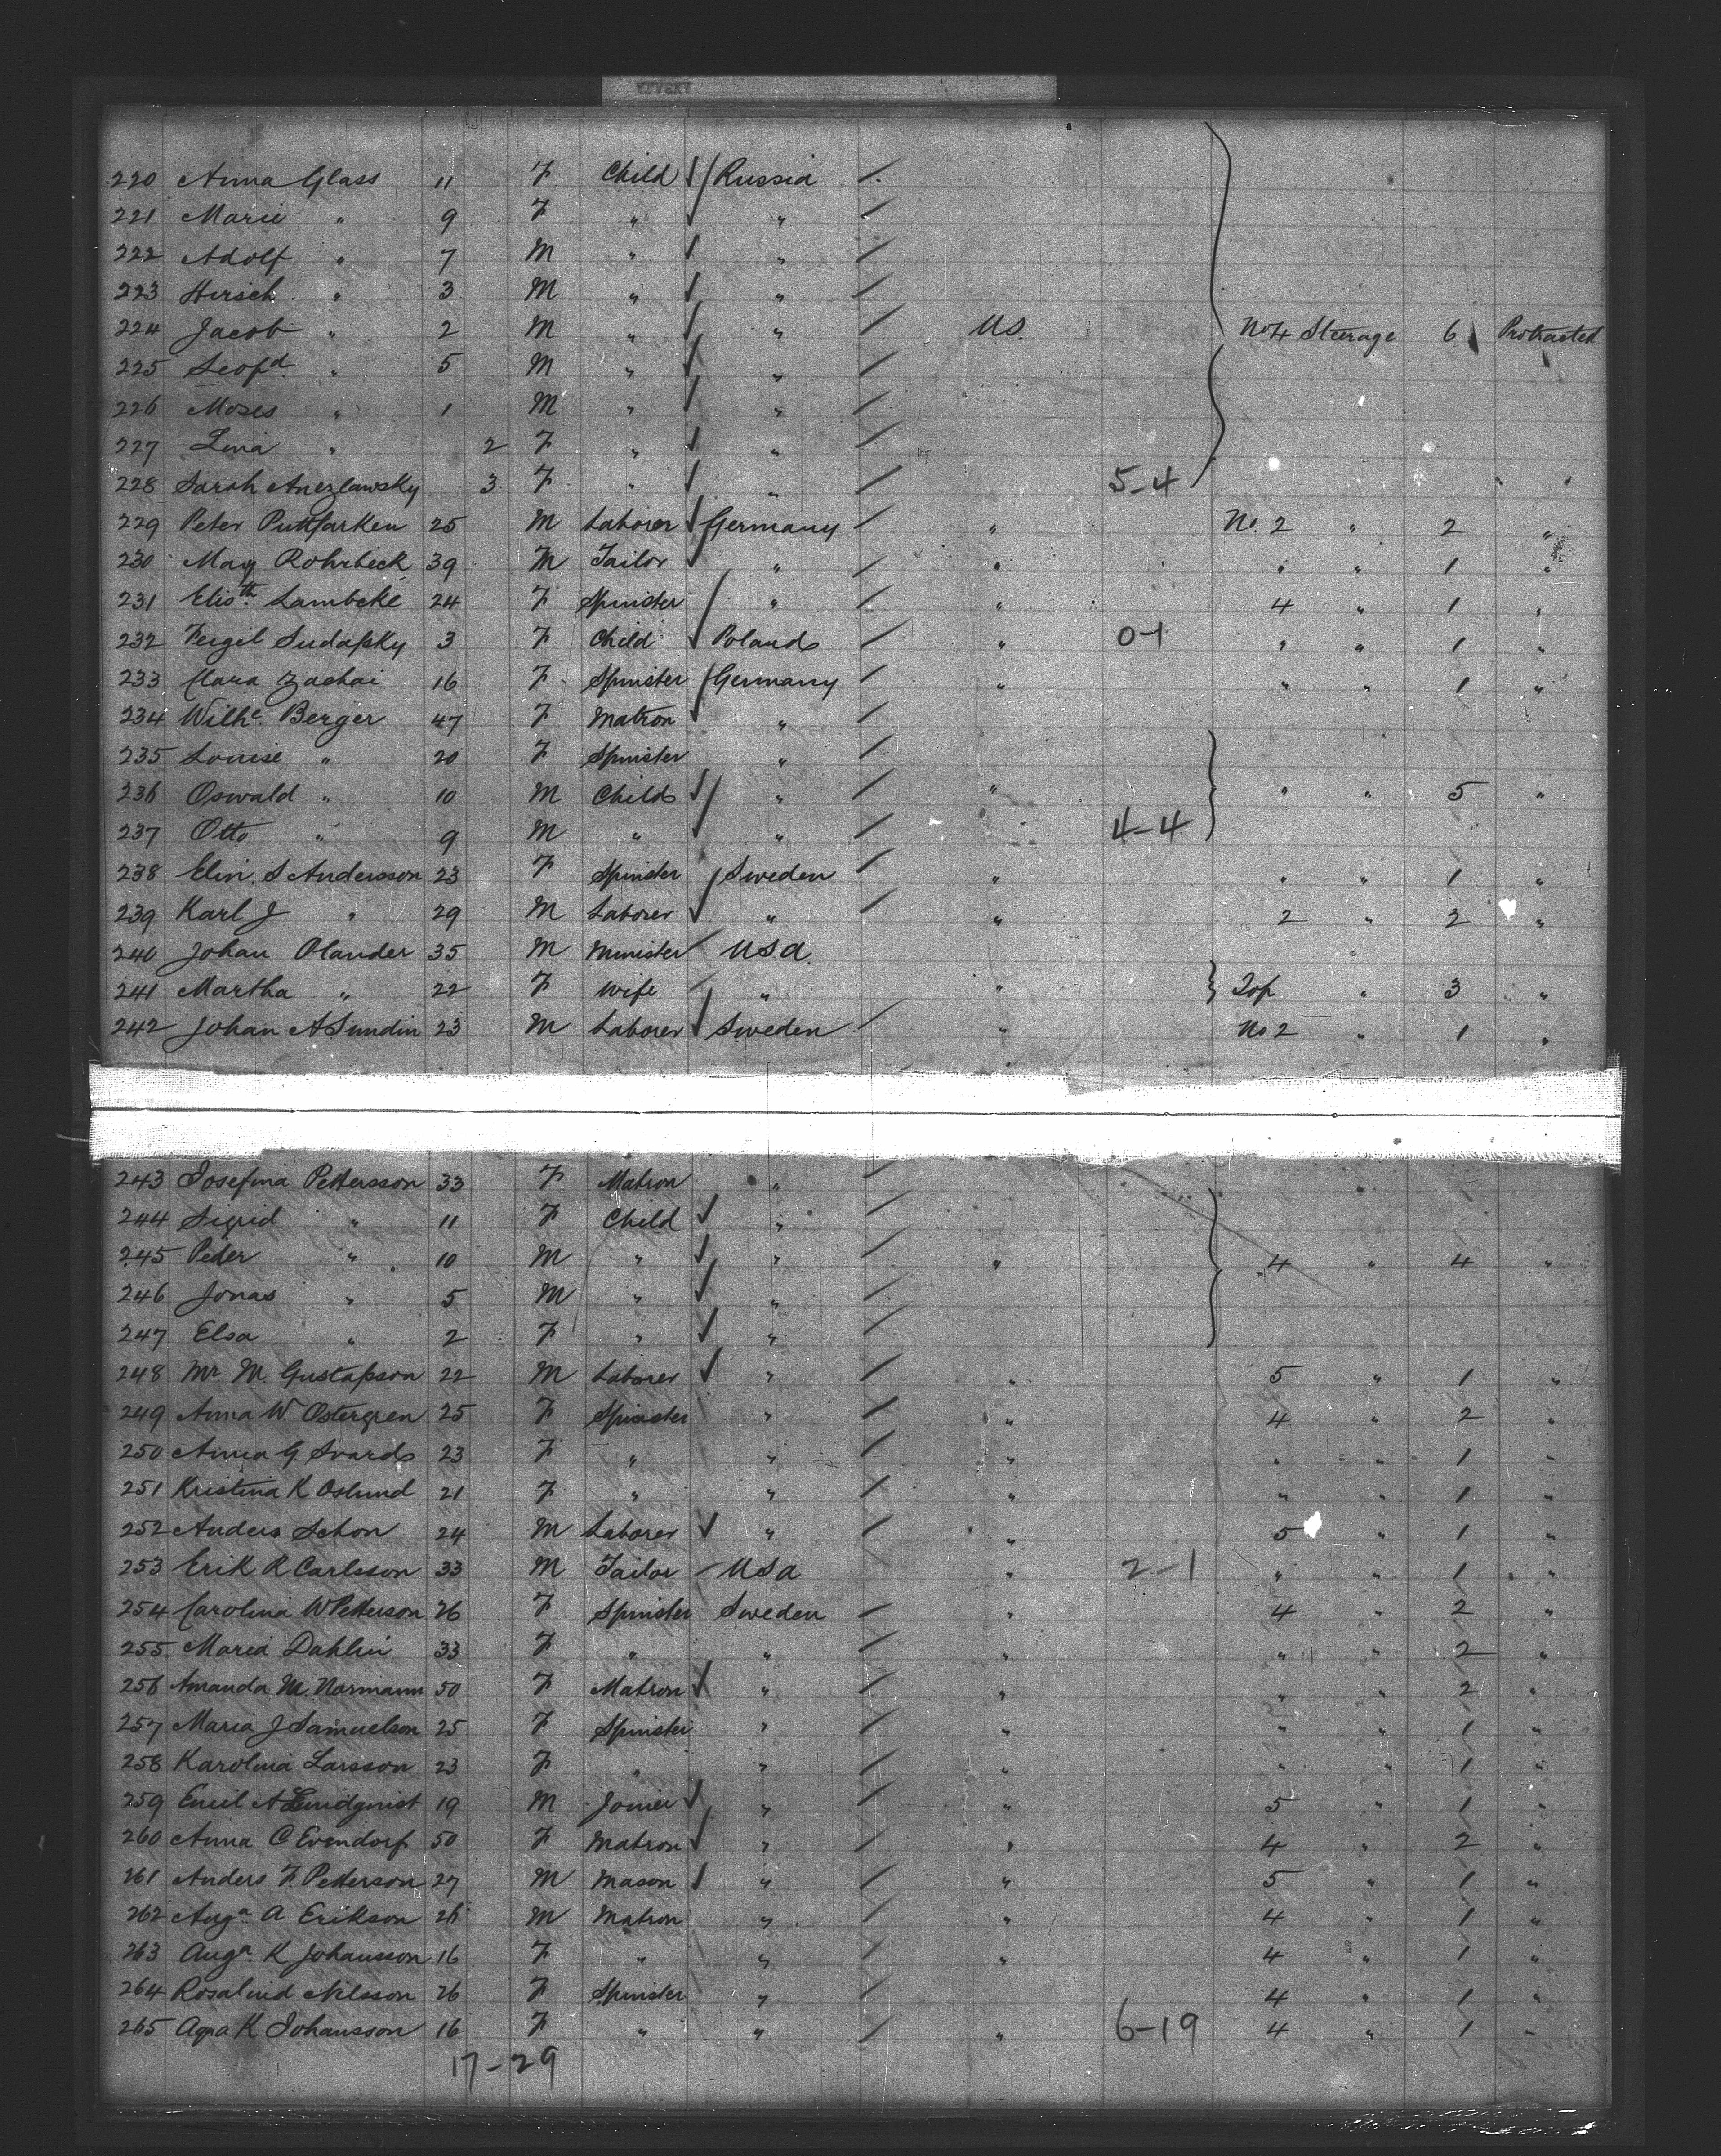 220 Anna Glass 11 F Child Russia
221 Marie " 9 F " "
222 Adolf " 7 M " "
223 Hirsch " 3 M " "
224 Jacob " 2 M " " U.S. No 4 Steerage 6 Protracted
225 Leopd. " 5 M " "
226 Moses " 1 M " "
227 Lina " 2 F " "
228 Sarah 3 F " " 5-4
229 Peter Puttfarken 25 M Laborer Germany " No. 2 " 2 "
230 Max Rohrbeck 39 M Tailor " " " " 1 "
231 Elisth. Lambcke 24 F Spinster " " 4 " 1 "
232 Feigil Sudafsky 3 F Child Poland " 0-1 " " 1 "
233 Clara Zachai 16 F Spinster Germany " " " 1 "
234 Wilhe. Berger 47 F Matron "
235 Louise " 20 F Spinster "
236 Oswald " 10 M Child " " " " 5 "
237 Otto " 9 M " " 4-4
238 Elin. S Andersson 23 F Spinster Sweden " " " 1 "
239 Karl J " 29 M Laborer " " 2 " 2 "
240 Johan Olander 35 M Minister U.S.A.
241 Martha " 22 F Wife " " Top " 3 "
242 Johan A Sundin 23 M Laborer Sweden " No 2 " 1 "
243 Josefina Pettersson 33 F Matron "
244 Sigrid " 11 F Child "
245 Peder " 10 M " " " 4 " 4 "
246 Jonas " 5 M " "
247 Elsa " 2 F " "
248 Mr M. Gustafson 22 M Laborer " " 5 " 1 "
249 Anna W. Ostergren 25 F Spinster " " 4 " 2 "
250 Anna G. Svard 23 F " " " " " 1 "
251 Kristina K Oslund 21 F " " " " " 1 "
252 Anders Schon 24 M Laborer " " 5 " 1 "
253 Erik R Carlsson 33 M Tailor USA " 2-1 " " 1 "
254 Carolina W Petterson 26 F Spinster Sweden " 4 " 2 "
255 Maria Dahlin 33 F " " " " " 2 "
256 Amanda M. Normann 50 F Matron " " " " 2 "
257 Maria J Samuelson 25 F Spinster " " " " 1 "
258 Karolina Larsson 23 F " " " " " 1 "
259 Emil A Lundqvist 19 M Joiner " " 5 " 1 "
260 Anna C Evendorf 50 F Matron " " 4 " 2 "
261 Anders F. Petterson 27 M Mason " " 5 " 1 "
262 Auga. A Erikson 26 M Matron " " 4 " 1 "
263 Auga. K Johansson 16 F " " " 4 " 1 "
264 Rosalind Nilsson 26 F Spinster " 4 " 1 "
265 K Johansson 16 F " " " 6-19 4 " 1 "
17-29